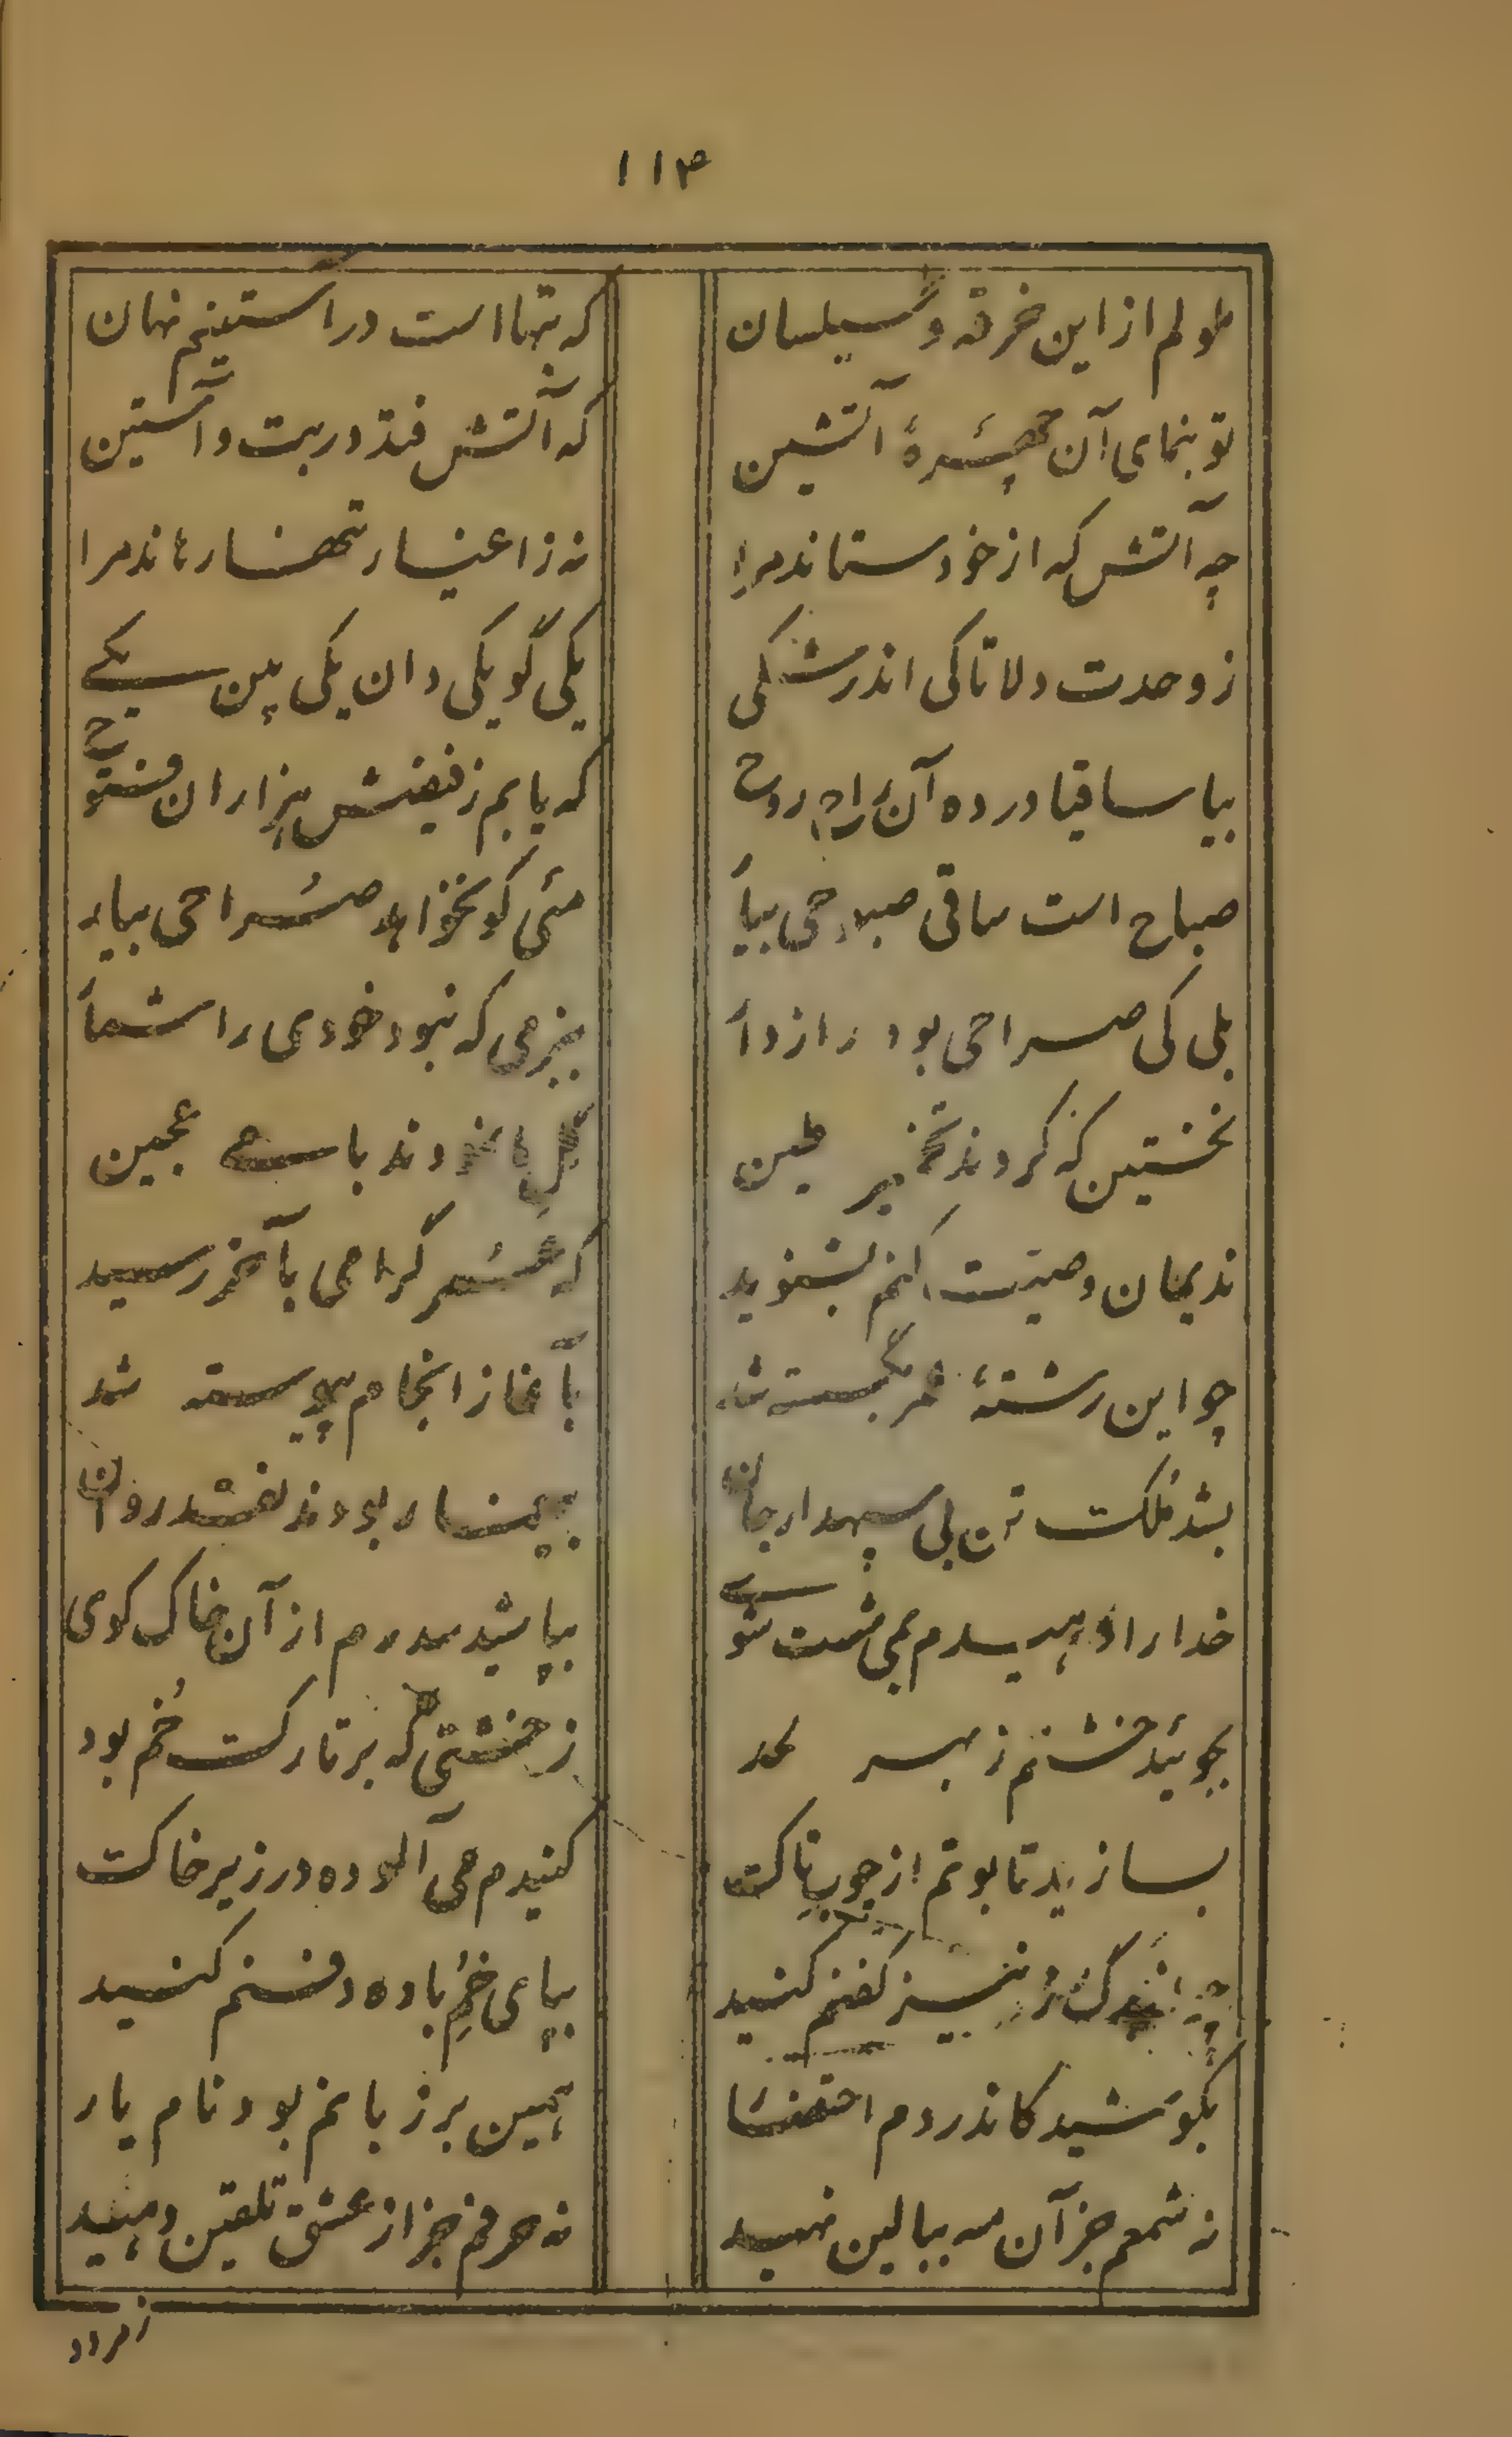 ۱۱۴
ملولم از این خرقه و سیلسان که بتها است در آستینم نهان
تو بنمای آن چهرهٔ آتشین که آتش فتد در بت و آستین
چه آتش که از خود ستاند مرا نه ز اغیار تنها رهاند مرا
ز وحدت دلا تا کی اندر شکی یکی گو یکی دان یکی بین یکی
بیا ساقیا در ده آن راح روح که یابم ز فیضش هزاران فتوح
صباح است ساقی صبوحی بیار مئی کو نخواهد صراحی بیار
بلی کی صراحی بود رازدار ببزمی که نبود خودی را شمار
نخستین که کردند تخمیر طین گل ما نمودند با می عجین
ندیمان وصیّت کنم بشنوید که عمر گرامی بآخر رسید
چو این رشتهٔ عمر بگسسته شد بآغاز انجام پیوسته شد
بشد ملکت تن بی سپهدار جان بیغما ربودند نقد روان
خدا را دهیدم بمی شست شوی بپاشید سدرم از آن خاک کوی
بجوئید خشتم ز بهر لحد ز خشتی که بر تارک خم بود
بسازید تابوتم از چوب تاک کنیدم می آلوده در زیر خاک
چو از برگ رز نیز کفنم کنید بپای خم باده دفنم کنید
بکوشید کاندر دم احتضار همین بر زبانم بود نام یار
نه شمعم جز آن مه ببالین نهید نه حرفم جز از عشق تلقین دهید
ز مرد